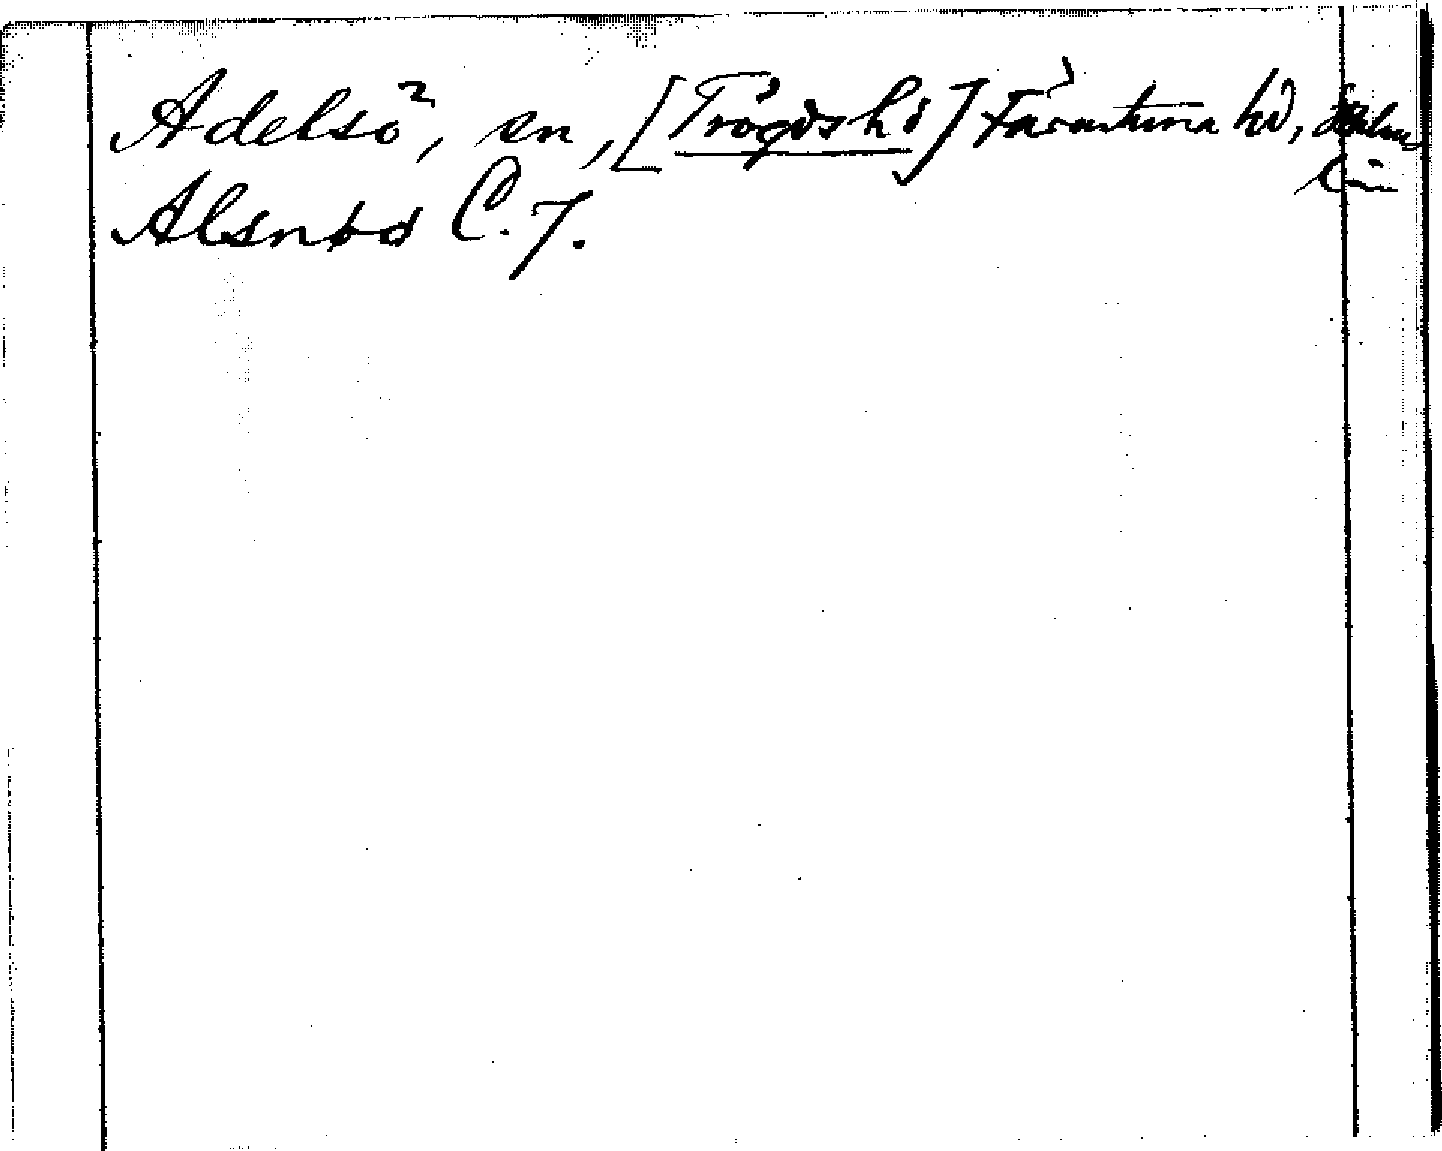 Adelsö, sn, [Trögds hd] Färentuna hd, Sthlms
län
Alsnöd C. 7.